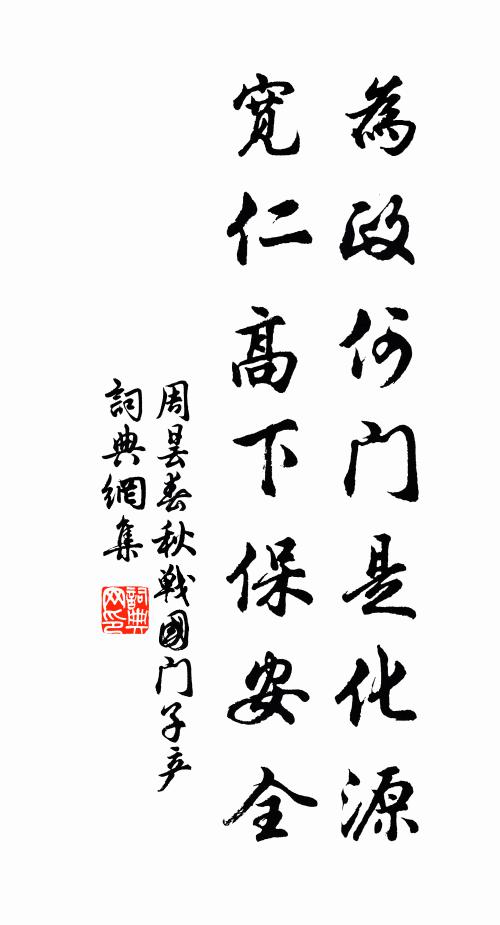 為政何门是化源
寬仁高下保安全
周昙春秋戦國门子产
詞典網集
詞典网印